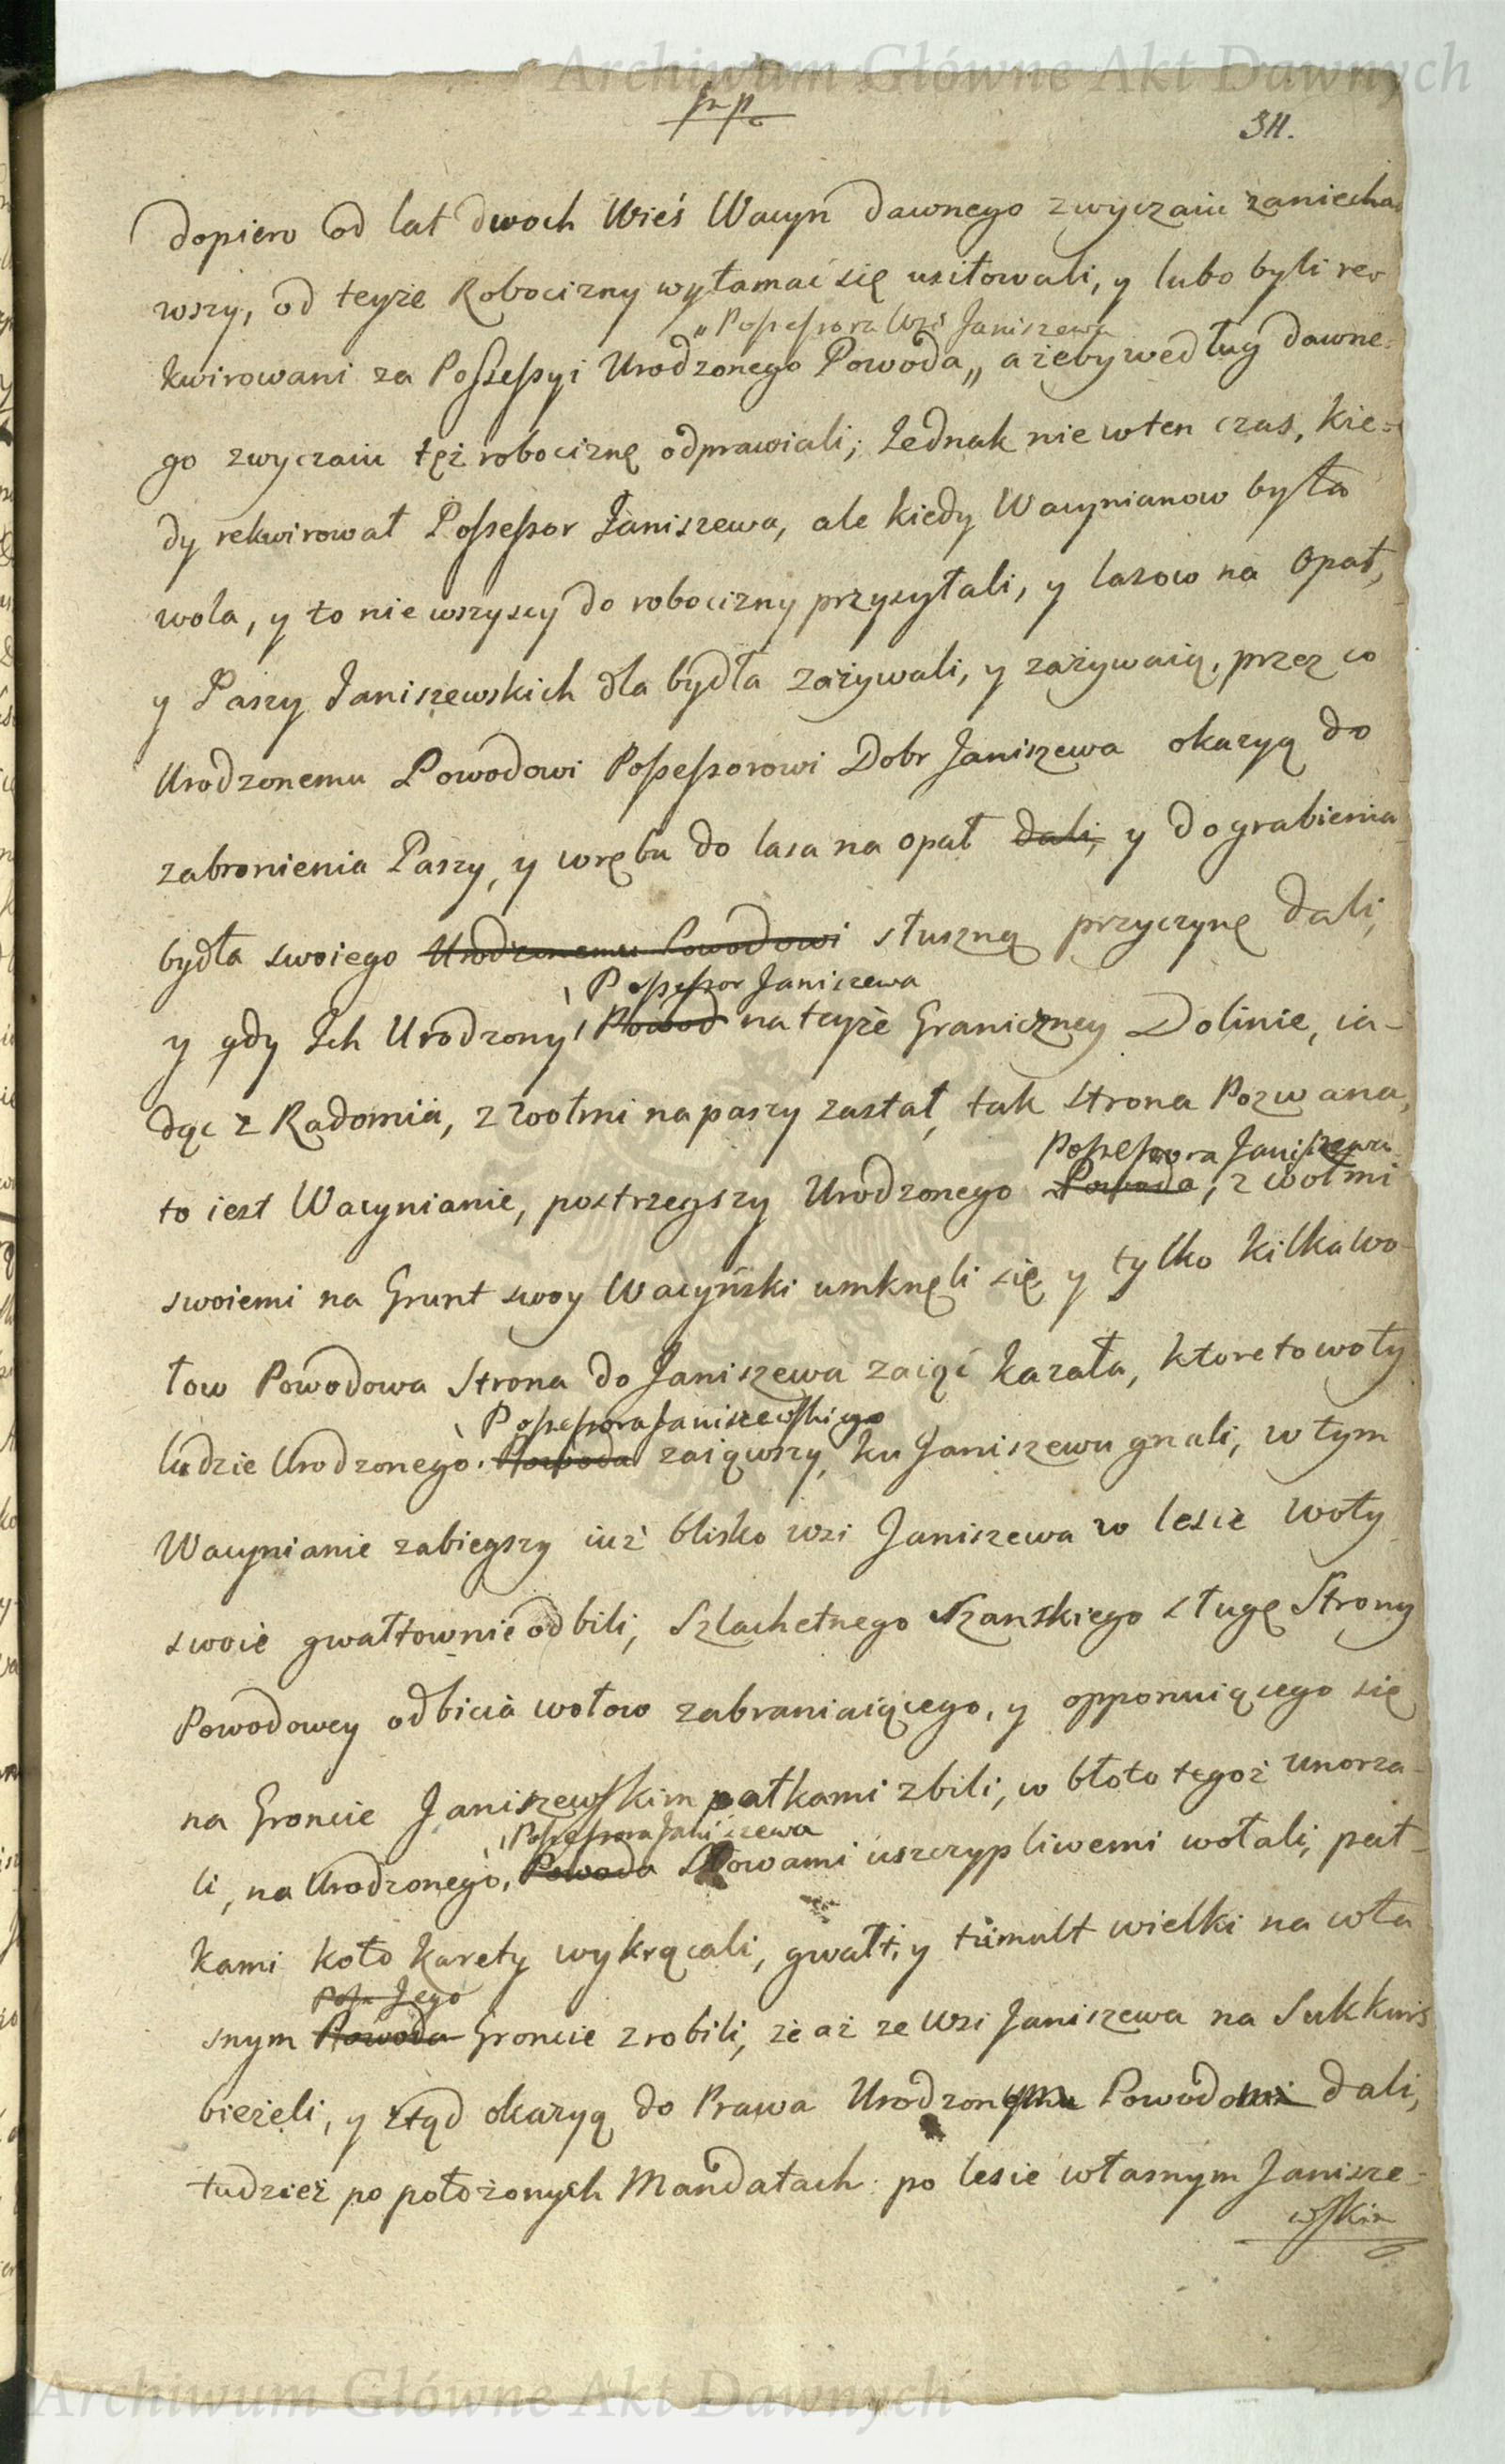 Archiwum Główne Akt Dawnych
34.
dopiero od lat dwoch Wieś Wacyn dawnego zwyczaiu zaniecha-
wszy, od teyże Robocizny wyłamać się usiłowali, y lubo byli re-
„Possessora Wsi Janiszewa
kwirowani za Possessyi Urodzonego Powoda„ ażeby według dawne-
go zwyczaiu tęż robociznę odprawiali; Jednak nie wten czas, kie-
dy rekwirował Possessor Janiszewa, ale kiedy Wacynianow była
wola, y to nie wszyscy do robocizny przysyłali, y lasow na Opał,
y Paszy Janiszewskich dla bydła zażywali, y zażywaią, przez co
Urodzonemu Powodowi Possessorowi Dobr Janiszewa okazyą do
zabronienia Paszy, y wrębu do lasa na opał dali, y do grabienia
bydła swoiego Urodzonemu Powodowi słuszną przyczynę dali,
Possessor Janiszewa
y gdy Ich Urodzony Powod na teyże Graniczney Dolinie, ia-
dąc z Radomia, z wołmi na paszy zastał, tak Strona Pozwana,
Possessora Janiszewa
to iest Wacynianie, postrzegszy Urodzonego Powoda, z wołmi
swoiemi na Grunt swoy Wacyński umknęli się y tylko kilka wo-
łow Powodowa Strona do Janiszewa zaiąć kazała, ktore to woły
Possessora Janiszewskiego
ludzie Urodzonego Powoda zaiąwszy, ku Janiszewu gnali, w tym
Wacynianie zabiegszy iuż blisko wsi Janiszewa w lesie woły
swoie gwałtownie odbili, Szlachetnego Szanskiego sługę Strony
Powodowey odbicia wołow zabraniaiącego, y opponuiącego się
na Groncie Janiszewskim pałkami zbili, w błoto tegoż unorza-
Possessora Janiszewa
li, na Urodzonego, Powoda Słowami uszczypliwemi wołali, pał-
kami koło karety wykrącali, gwałt, y tumult wielki na wła
Poss. Jego
snym Powoda Groncie zrobili, że aż ze wsi Janiszewa na Sukkurs
bieżeli, y ztąd okazyą do Prawa Urodzonemu Powodowi dali,
tudzież po położonych Mandatach po lesie własnym Janisze-
wskim
Archiwum Główne Akt Dawnych